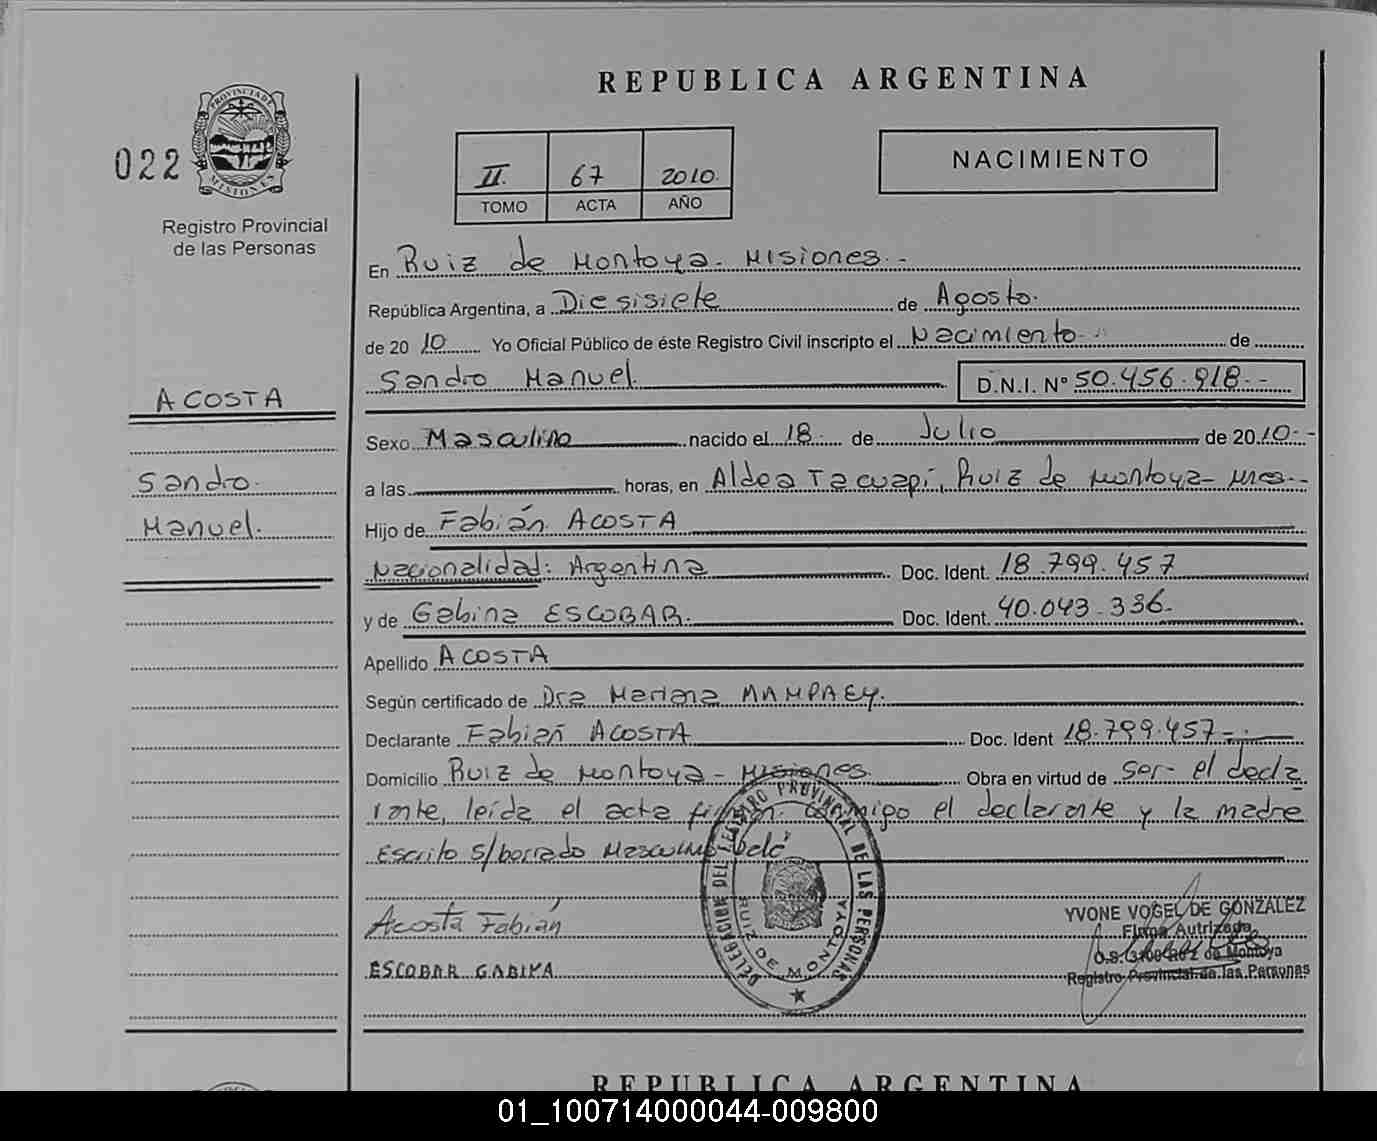 REPUBLICA ARGENTINA
PROVINCIA DE
MISIONES
022
Registro Provincial
de las Personas
II. 67 2010.
TOMO ACTA AÑO
NACIMIENTO
En Ruiz de Montoya - Misiones.-
República Argentina, a Diesisiete de Agosto.
de 20 10 Yo Oficial Público de éste Registro Civil inscripto el Nacimiento de
Sandro Manuel. D.N.I. Nº 50.456.918.-
ACOSTA
Sandro
Manuel.
Sexo Masculino nacido el 18 de Julio de 20 10.-
a las horas, en Aldea Tacuapí, Ruiz de Montoya - Mnes.-
Hijo de Fabián ACOSTA
Nacionalidad: Argentina Doc. Ident. 18.799.457
y de Gabina ESCOBAR. Doc. Ident. 40.043.336.
Apellido ACOSTA
Según certificado de Dra Mariana MAMPAEY.
Declarante Fabián ACOSTA Doc. Ident 18.799.457-.
Domicilio Ruiz de Montoya - Misiones. Obra en virtud de ser- el decla
rante, leída el acta firman conmigo el declarante y la madre
Escrito s/borrado Masculino
Acosta Fabián
ESCOBAR GABINA
DELEGACION DEL REGISTRO PROVINCIAL DE LAS PERSONAS
RUIZ DE MONTOYA
YVONE VOGEL DE GONZALEZ
Firma Autrizada
de Montoya
Registro Provincial de las Personas
REPUBLICA ARGENTINA
01_100714000044-009800